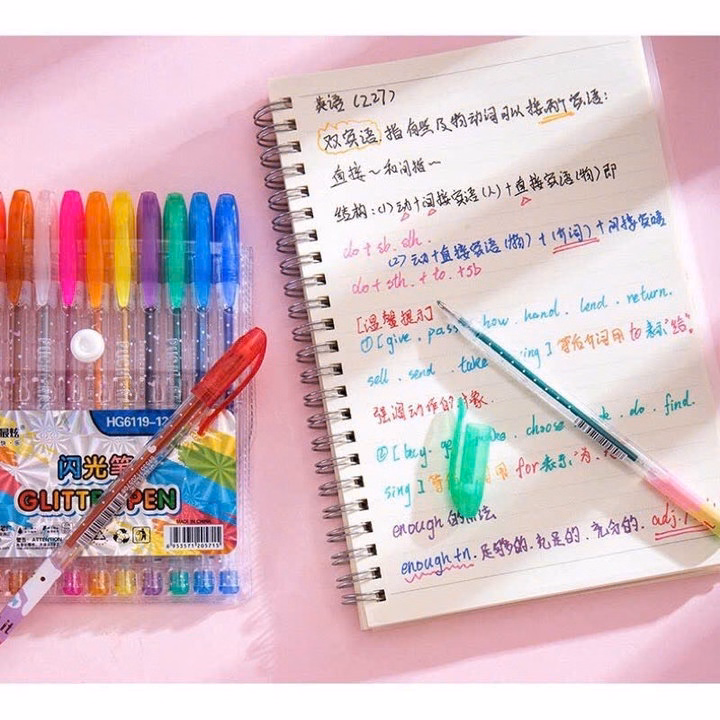 英语（227）
双宾语,指有些及物动词可以接两个宾语:
直接～和间接～
结构:(1)动+间接宾语(人)+直接宾语(物)即
do + sb. sth.
(2)动+直接宾语(物)+(介词)+间接宾语
do + sth. + to. + sb
[温馨提示]
①[give. pass. how. hand. lend. return.
sell. send. take. ing]等后介词用to表示"给"。
强调动作的对象.
②[buy. choose. do. find.
sing] 用for表示"为.
enough的用法
enough+n.足够的.充足的.充分的. adj.
HG6119-12
闪光笔
GLITTER PEN
ATTENTION
MADE IN CHINA